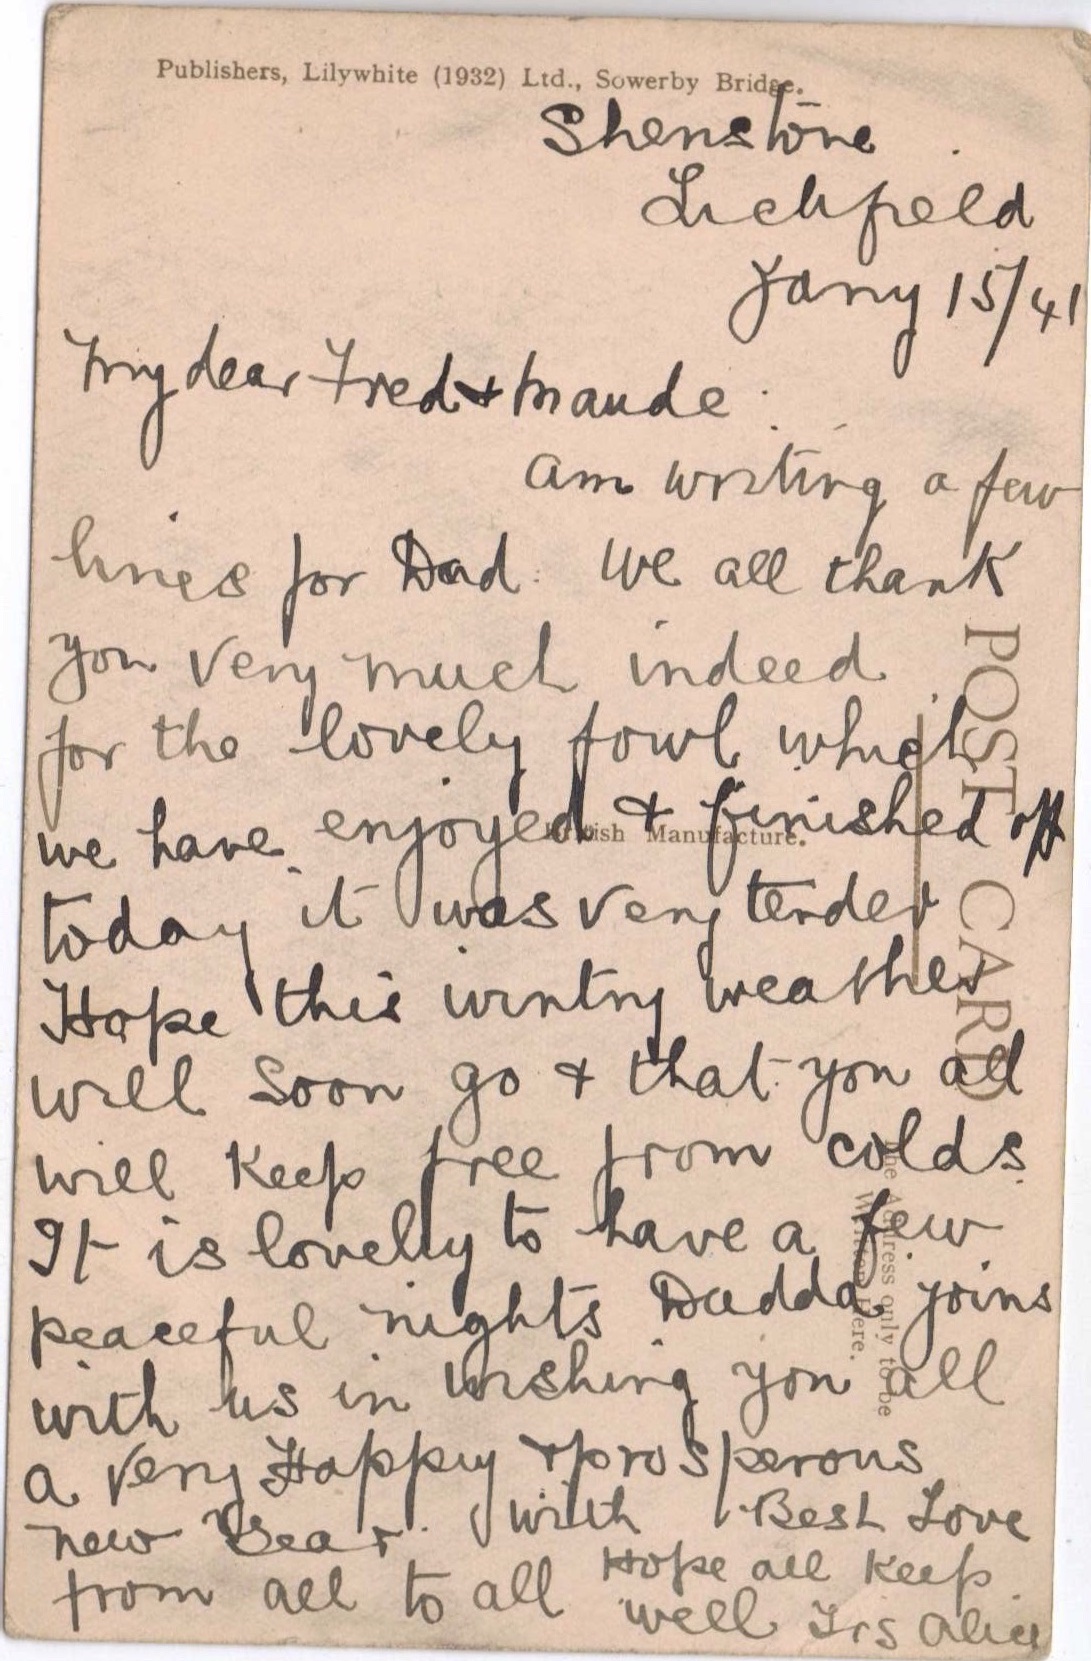 Publishers, Lilywhite (1932) Ltd., Sowerby Bridge.
Shenstone
Lichfield
Jany 15/41
My dear Fred & Maude
Am writing a few
lines for Dad. We all thank
you very much indeed
for the lovely fowl which
we have enjoyed & finished off
today it was very tender
Hope this wintry weather
will soon go & that you all
will keep free from colds.
It is lovely to have a few
peaceful nights Dadda joins
with us in wishing you all
a very Happy & prosperous
new Year. With Best Love
from all to all Hope all keep
well Yrs Alice
British Manufacture.
POST CARD
The Address only to be
Written Here.